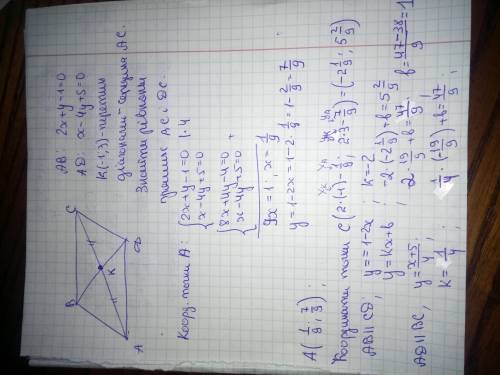 B
C
K
A
D
AB: 2x+y-1=0
AD: x-4y+5=0
K(-1;3)-перетин
діагоналей-середина AC.
Знайти рівняння
прямих AC і DC.
Коорд. точки A: {2x+y-1=0 |·4
x-4y+5=0
{8x+4y-4=0
x-4y+5=0 +
9x=1; x=1/9
y=1-2x=1-2·1/9=1-2/9=7/9
A(1/9; 7/9);
Координати точки C(2·(-1)-1/9; 2·3-7/9)=(-2 1/9; 5 2/9)
AB||CD; y=1-2x; k=-2
y=kx+b; -2(-2 1/9)+b=5 2/9
2·19/9+b=47/9; b=(47-38)/9=1
AD||BC; y=(x+5)/4;
k=1/4; 1/4·(-19/9)+b=47/9;